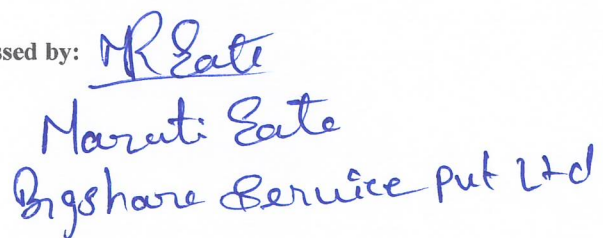 ssed by: MR Eate
Maruti Eate
Bigshare Service Put Ltd